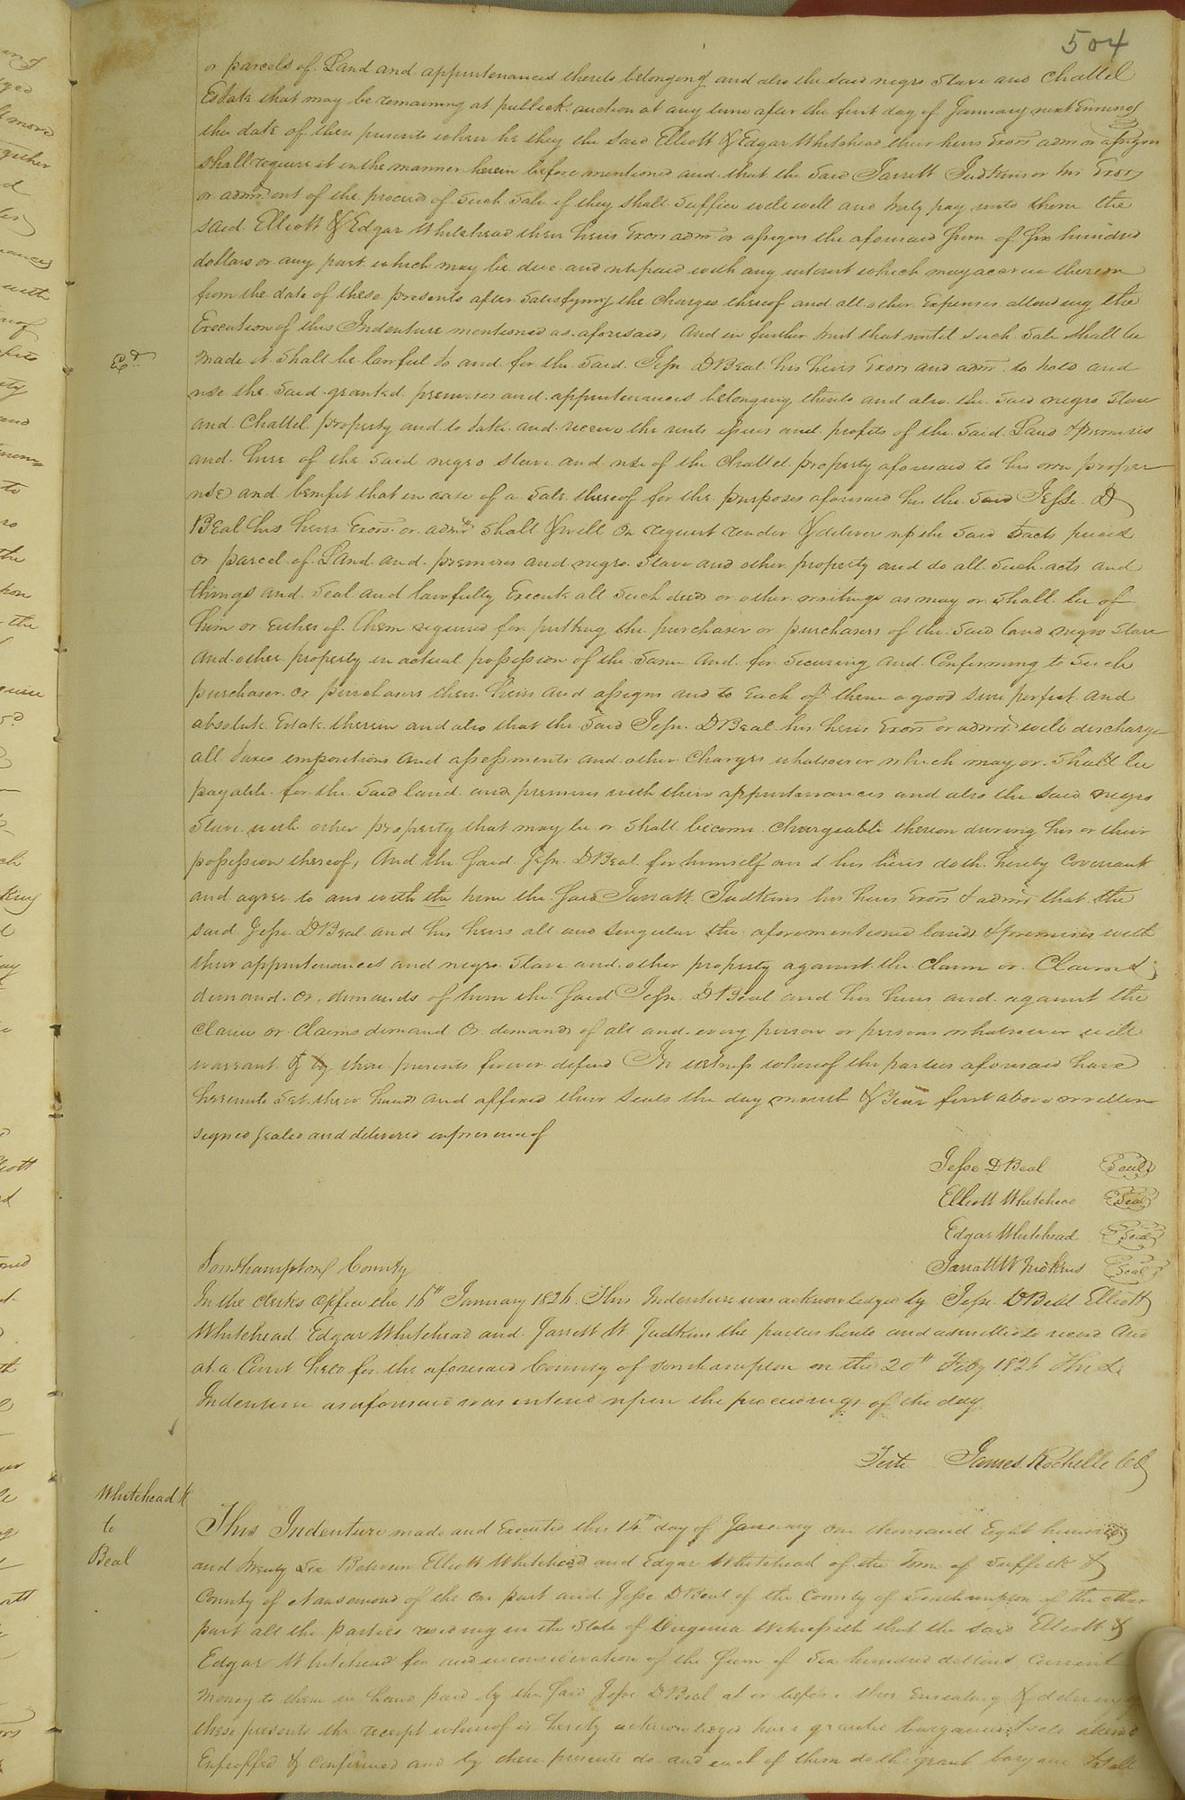 504
or parcels of Land and appurtenances thereto belonging and also the said negro Slave and Chattel
Estate that may be remaining at publick auction at any time after the first day of January next Ensuing
the date of these presents when he they the said Elliott & Edgar Whitehead their heirs Exors adm or assigns
shall require it in the manner herein before mentioned and that the Said Jarrett Judkins or his Exors
or admr out of the proceeds of Such Sale if they shall Suffice will well and truly pay unto them the
said Elliott & Edgar Whitehead their heirs Exors adm or assigns the aforesaid Sum of Six hundred
dollars or any part which may be due and unpaid with any interest which may accrue thereon
from the date of these presents after Satisfying the Charges thereof and all other Expenses attending the
Execution of this Indenture mentioned as aforesaid, And in further trust that until such Sale Shall be
Exd
made it Shall be lawful to and for the Said Jesse D Beal his heirs Exors and adm to hold and
use the Said granted premises and appurtenances belonging thereto and also the Said negro Slave
and Chattel property and to take and receive the rents issues and profits of the Said Land & premises
and hire of the Said negro slave and use of the Chattel property aforesaid to his own proper
use and benefit that in case of a Sale thereof for the purposes aforesaid he the Said Jesse D
Beal his heirs Exors or admr Shall & will on request render & deliver up the Said tracts pieces
or parcel of Land and premises and negro Slave and other property and do all Such acts and
things and Seal and lawfully Execute all Such deeds or other writings as may or Shall be of
him or either of them required for putting the purchaser or purchasers of the Said land negro Slave
and other property in actual possession of the Same and for Securing and Confirming to Such
purchaser or purchasers their heirs and assigns and to Each of them a good Sure perfect and
absolute Estate therein and also that the Said Jesse D Beal his heirs Exors or admr will discharge
all taxes impositions and assessments and other Charges whatsoever which may or Shall be
payable for the Said land and premises with their appurtenances and also the Said negro
Slave with other property that may be or Shall become Chargeable thereon during his or their
possession thereof, And the Said Jesse D Beal for himself and his heirs doth hereby Covenant
and agree to and with the him the Said Jarratt Judkins his heirs Exors & admr that the
said Jesse D Beal and his heirs all and Singular the aforementioned lands & premises with
their appurtenances and negro Slave and other property against the Claim or Claims
demand or demands of him the Said Jesse D Beal and his heirs and against the
Claim or Claims demand or demands of all and every person or persons whatsoever will
warrant & by these presents forever defend In witness whereof the parties aforesaid have
hereunto Set their hands and affixed their Seals the day month & Year first above written
signed sealed and delivered in presence of
Jesse D Beal Seal
Elliott Whitehead Seal
Edgar Whitehead Seal
Jarratt W Judkins Seal
Southampton County
In the clerks office the 16th January 1826. This Indenture was acknowledged by Jesse D Beal Elliott
Whitehead Edgar Whitehead and Jarrett W Judkins the parties hereto and admitted to record And
at a Court held for the aforesaid County of Southampton on the 20th Feby 1826 The
Indenture as aforesaid was entered upon the proceedings of the day
Teste James Rochelle CC
Whitehead &
to
Beal
This Indenture made and Executed this 14th day of January one thousand Eight hundred
and twenty Six Between Elliott Whitehead and Edgar Whitehead of the Town of Suffolk &
County of Nansemond of the one part and Jesse D Beal of the County of Southampton of the other
part all the parties residing in the State of Virginia Witnesseth that the said Elliott &
Edgar Whitehead for and in consideration of the Sum of Six hundred dollars Current
money to them in hand paid by the Said Jesse D Beal at or before the Ensealing & delivery of
these presents the receipt whereof is hereby acknowledged have granted bargained sold aliened
Enfeoffed & Confirmed and by these presents do and each of them doth grant bargain & sell